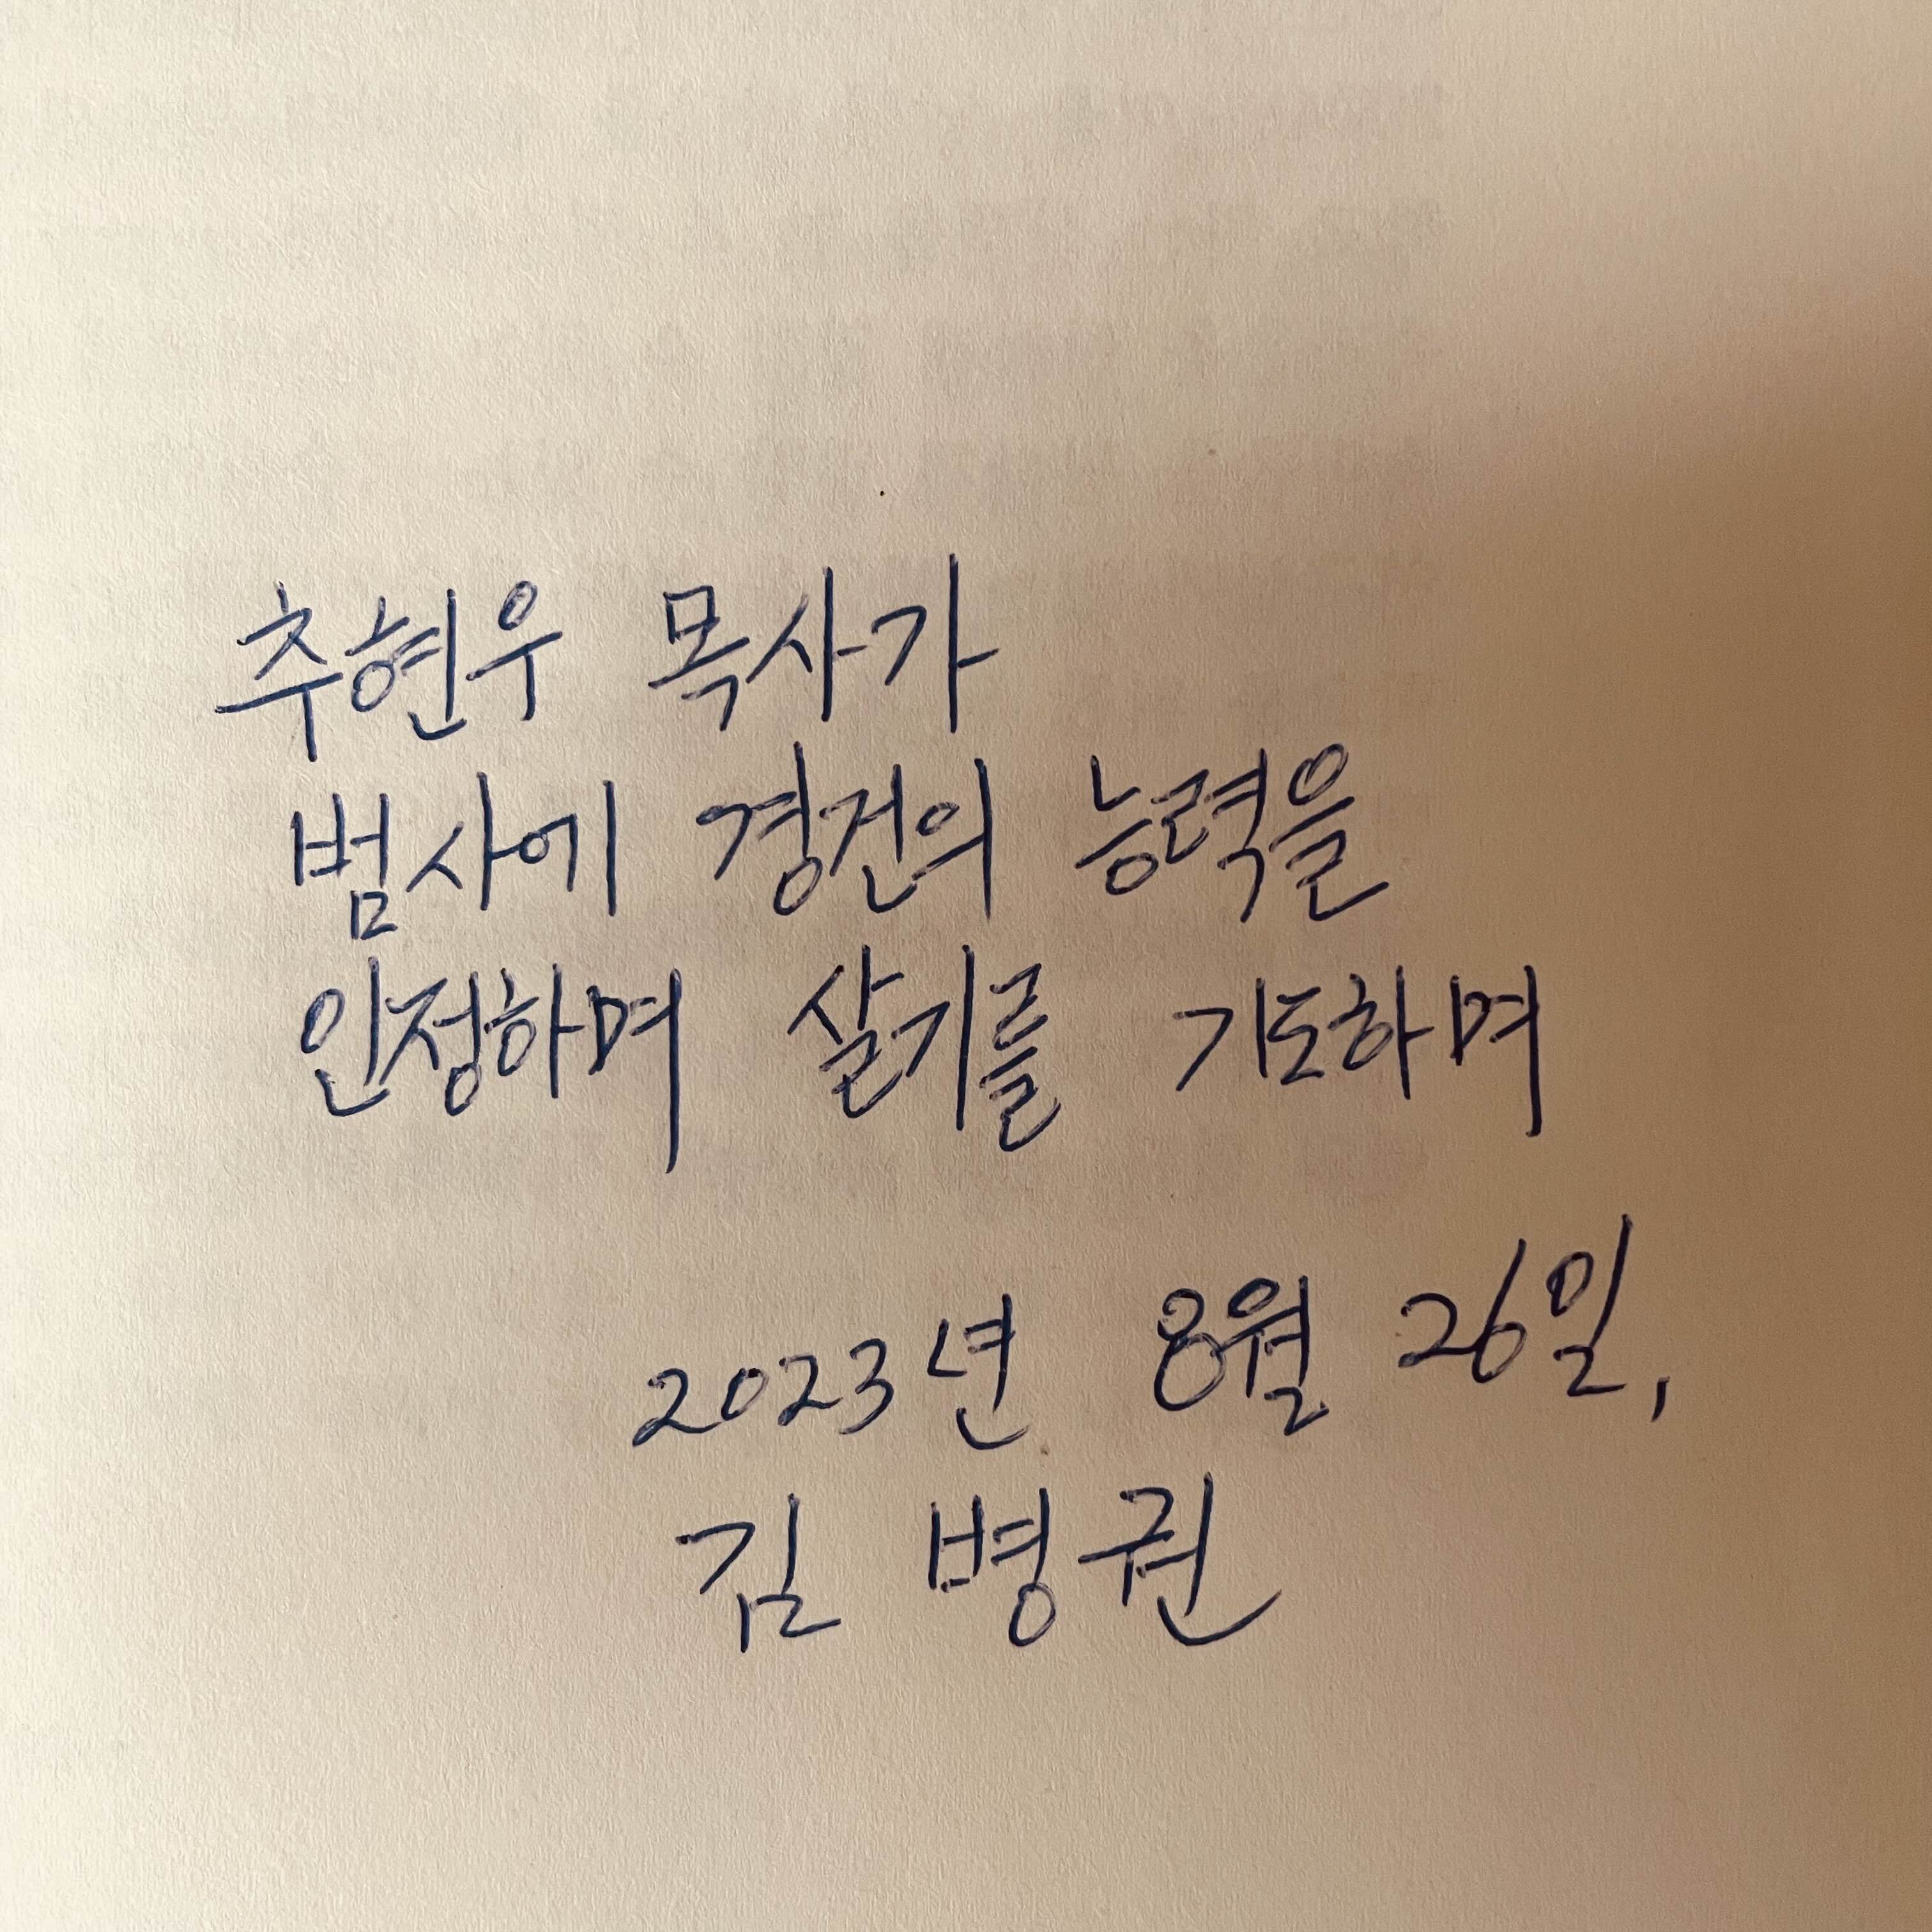 추현우 목사가
범사에 경건의 능력을
인정하며 살기를 기도하며
2023년 8월 26일,
김 병권